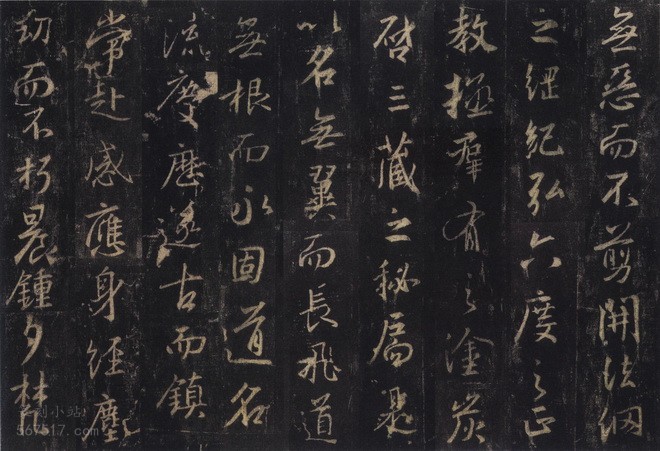 無惡而不剪開法網
之綱紀弘六度之正
教拯群有之塗炭
啓三藏之秘扃是
以名無翼而長飛道
無根而永固道名
流慶歷遂古而鎮
常赴感應身經塵
劫而不朽晨鍾夕梵
567517.com